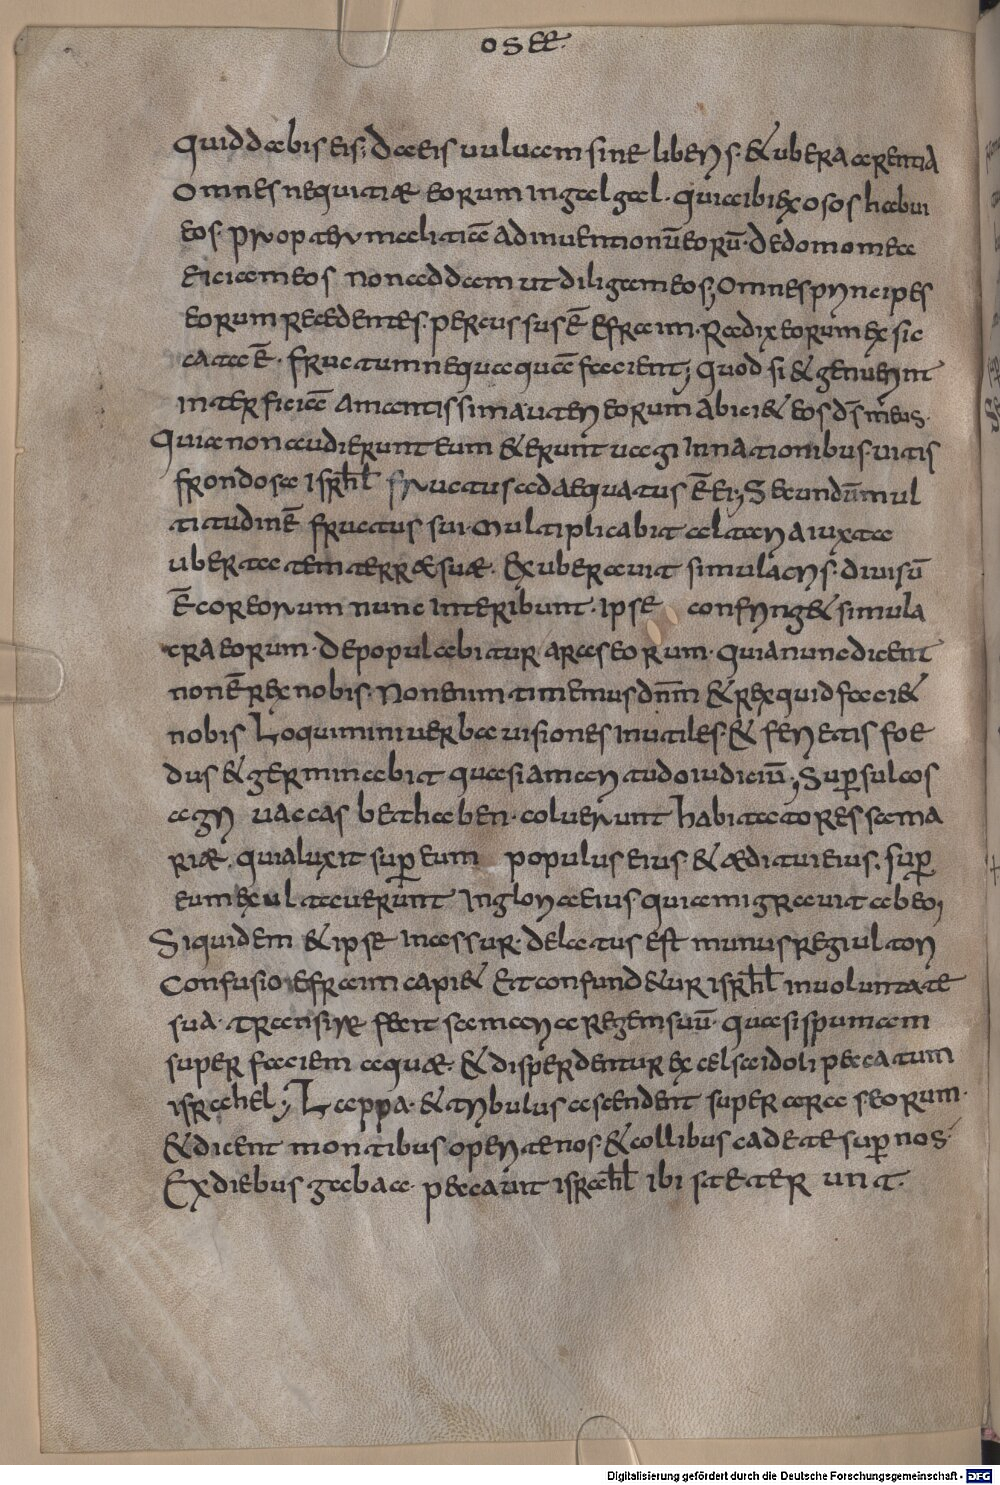 OSEE
Quid dabis eis; Da eis vulvam sine liberis. & ubera arentia
Omnes nequitiae eorum in galgal. quia ibi exosos habui
eos. propter malitiā adinventionū eorū. de domo mea
eiciam eos non addam ut diligam eos; Omnes principes
eorum recedentes. percussus ē efraim. Radix eorum exsic
cata ē. fructum nequaquā facient; Quod si & genuerint
interficiā amantissima uteri eorum abici& eos d̄s meus.
Quia non audierunt eum & erunt vagi in nationibus. vitis
frondosa isrhl fructus adaequatus ē ei; Secundū mul
titudinē fructus sui. Multiplicabit altaria iuxta
ubertatem terrae suae. Exuberavit simulacris. divisū
ē cor eorum nunc interibunt. ipse confring& simula
cra eorum. depopulabitur aras eorum. quia nunc dicent
non ē rex nobis. Non enim timemus dn̄m & rex quid faci&
nobis Loquimini verba visiones inutiles. & ferietis foe
dus & germinabit quasi amaritudo iudiciū; Super sulcos
agri vaccas bethaben. coluerunt habitatores sama
riae. quia luxit super eum populus eius. & aeditui eius. super
eum exultaverunt in gloria eius quia migravit ab eo;
Siquidem & ipse in assur. delatus est munus regi ultori
Confusio efraim capi& Et confund&ur isrhl in voluntate
sua. transire fecit samaria regem suū. quasi spumam
super faciem aquae. & disperdentur excelsa idoli peccatum
israhel; Lappa. & tribulus ascendent super aras eorum.
& dicent montibus operite nos. & collibus cadete super nos.
Ex diebus gabaa. peccavit israhl ibi steterunt.
Digitalisierung gefördert durch die Deutsche Forschungsgemeinschaft - DFG